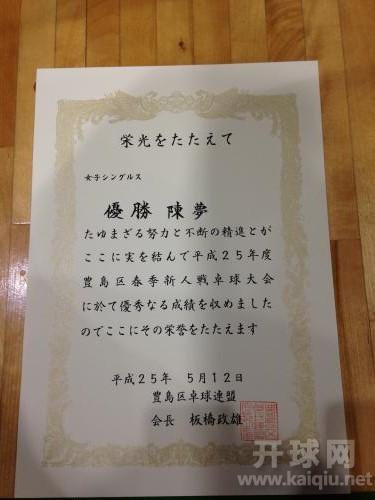 栄光をたたえて
女子シングルス
優勝 陳夢
たゆまざる努力と不断の精進とが
ここに実を結んで平成25年度
豊島区春季新人戦卓球大会
に於て優秀なる成績を収めました
のでここにその栄誉をたたえます
平成25年 5月12日
豊島区卓球連盟
会長 板橋政雄
开球网
www.kaiqiu.net